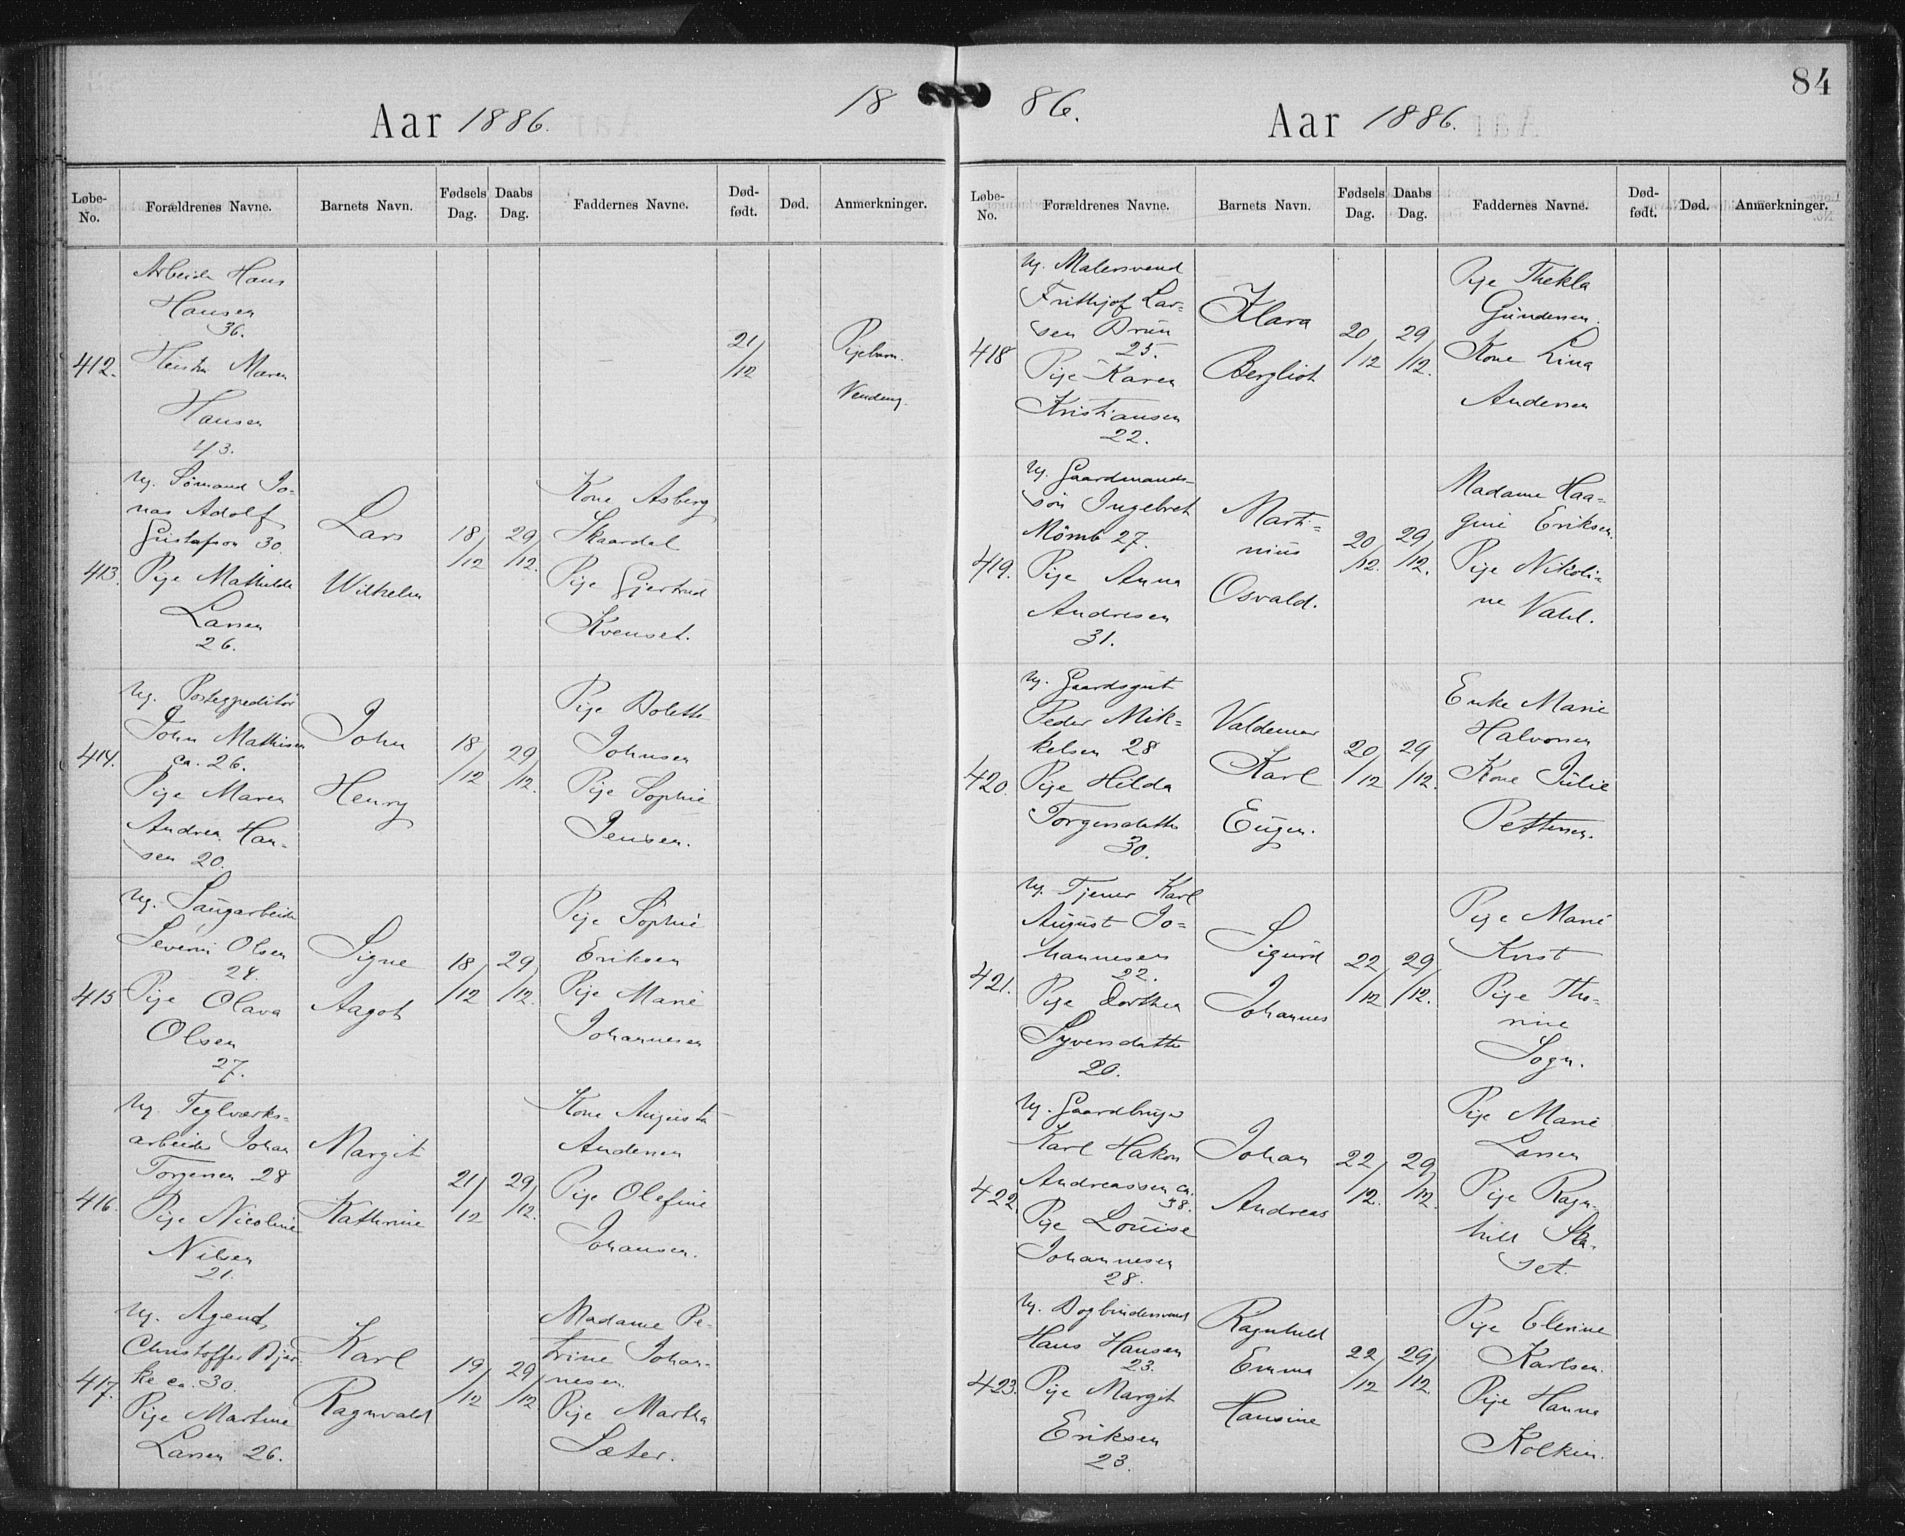 84
18 86.
Aar 1886.
Løbe-No.
Forældrenes Navne.
Barnets Navn.
Fødsels Dag.
Daabs Dag.
Faddernes Navne.
Død-født.
Død.
Anmerkninger.
412.
Arbeider Hans
Hansen
36.
Maren
Hansen
43.
21/12
Pigebarn.
413.
Ug. Sømand Jo-
nas Adolf
Gustafson 30.
Pige Mathilde
Larsen
26.
Lars
Wilhelm
18/12
29/12.
Kone Asberg
Skaardal
Pige Gjertrud
Kvenset.
414.
Ug. Postexpeditør
John Mathisen
ca. 26.
Pige Maren
Andrea Han-
sen 20.
John
Henry
18/12
29/12.
Pige Dolette
Johnsen
Pige Sophie
Jensen.
415
Ug. Saugarbeider
Severin Olsen
24.
Pige Olava
Olsen
27.
Signe
Aagot
18/12
29/12.
Pige Sophie
Eriksen
Pige Marie
Johannesen
416.
Ug. Teglværks-
arbeider Johan
Torgersen 28
Pige Nicoline
Nilsen
21.
Margit
Kathrine
21/12
29/12.
Kone Augusta
Andersen
Pige Olefine
Johansen.
417.
Ug. Agent,
Christoffer Bjer-
ke ca. 30.
Pige Martine
Larsen 26.
Karl
Ragnvald
19/12
29/12
Madame Pe-
trine Johan-
nesen.
Pige Martha
Sæter.
Aar 1886.
Løbe-No.
Forældrenes Navne.
Barnets Navn.
Fødsels Dag.
Daabs Dag.
Faddernes Navne.
Død-født.
Død.
Anmerkninger.
418
Ug. Malersvend
Frithjof Lar-
sen Bruu
25.
Pige Karen
Kristiansen
22.
Klara
Bergliot
20/12
29/12.
Pige Thekla
Gundersen.
Kone Lina
Andersen
419.
Ug. Gaardmands-
søn Ingebret
Mømb 27.
Pige Anna
Andresen
31.
Marti-
nius
Osvald.
20/12.
29/12.
Madame Haa-
gine Eriksen.
Pige Nikoli-
ne Vahl.
420.
Ug. Gaardsgut
Peder Mik-
kelsen 28
Pige Hilda
Torgersdatter
30.
Valdemar
Karl
Eugen.
20/12
29/12.
Enke Marie
Halvorsen
Kone Julie
Pettersen.
421.
Ug. Tjener Karl
August Jo-
hannesen
22.
Pige Dorthea
Syversdatter
20.
Sigurd
Johannes
22/12
29/12.
Pige Marie
Kvist
Pige Tho-
rine
Sogn.
422.
Ug. Gaardbruger
Karl Hakon
Andreassen ca.
38.
Pige Louise
Johannesen
28.
Johan
Andreas
22/12.
29/12.
Pige Marie
Larsen
Pige Ragn-
hild Ska-
set.
423.
Ug. Bogbindersvend
Hans Hansen
23.
Pige Margit
Eriksen
23.
Ragnhild
Emma
Hansine
22/12
29/12
Pige Elerine
Karlsen.
Pige Hanna
Kolkin.